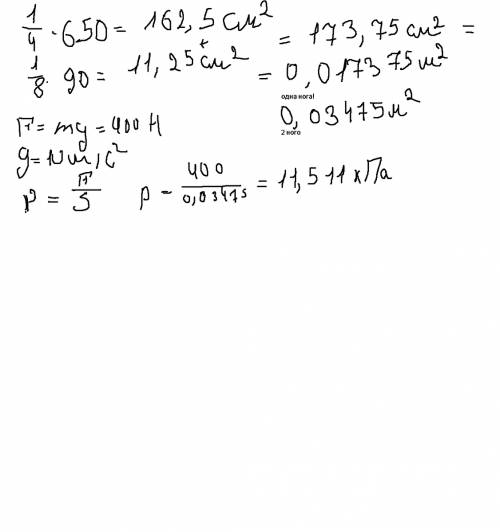 1/4 · 650 = 162,5 см² = 173,75 см² =
+
1/8 · 90 = 11,25 см² = 0,017375 м²
одна нога!
F = mg = 400 H
0,03475 м²
2 ного
g = 10 м/с²
p = F/S p - 400/0,03475 = 11,511 кПа